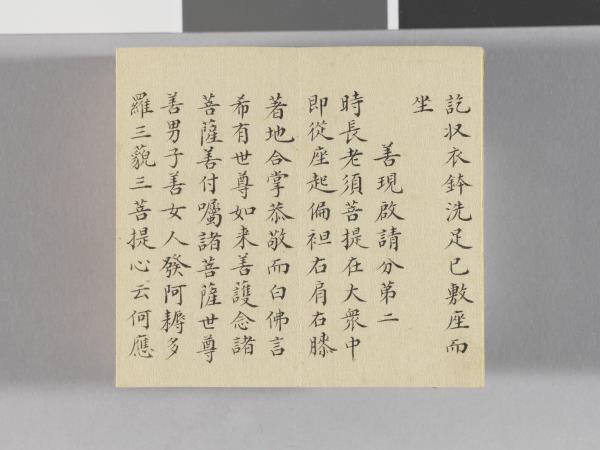 訖収衣鉢洗足已敷座而
坐
善現啟請分第二
時長老須菩提在大衆中
即從座起偏袒右肩右膝
著地合掌恭敬而白佛言
希有世尊如来善護念諸
菩薩善付囑諸菩薩世尊
善男子善女人發阿耨多
羅三藐三菩提心云何應